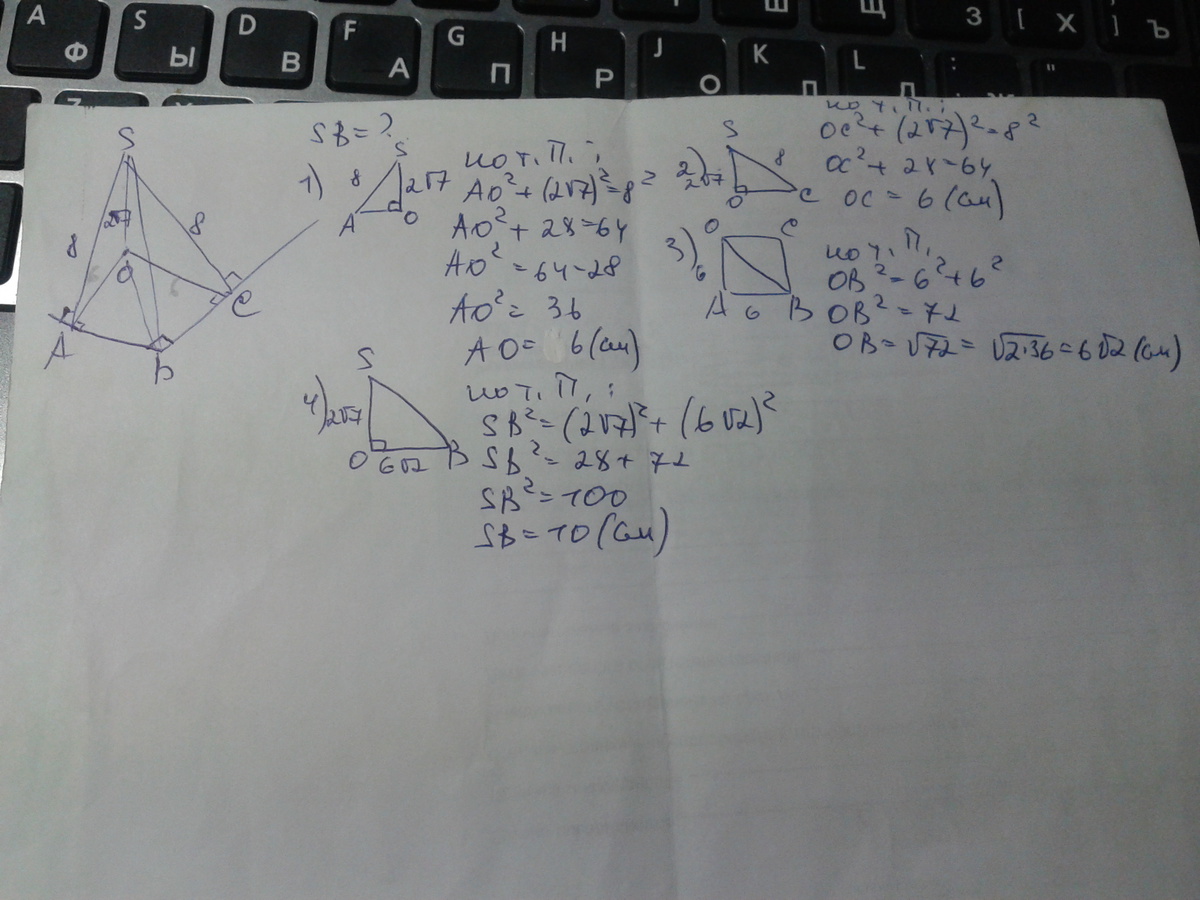 A S D F G H J K L : "
Ф Ы В А П Р О Л Д Ж
Ш Щ З [ Х ] Ъ
SB = ?
S
8
8
2√7
O
A
B
C
1)
S
8
2√7
A
O
по т. П. :
AO² + (2√7)² = 8²
AO² + 28 = 64
AO² = 64 - 28
AO² = 36
AO = 6 (см)
2)
S
2√7
8
O
C
по т. П. :
OC² + (2√7)² = 8²
OC² + 28 = 64
OC = 6 (см)
3)
O
C
6
A
6
B
по т. П.
OB² = 6² + 6²
OB² = 72
OB = √72 = √2·36 = 6√2 (см)
4)
S
2√7
O
6√2
B
по т. П. :
SB² = (2√7)² + (6√2)²
SB² = 28 + 72
SB² = 100
SB = 10 (см)